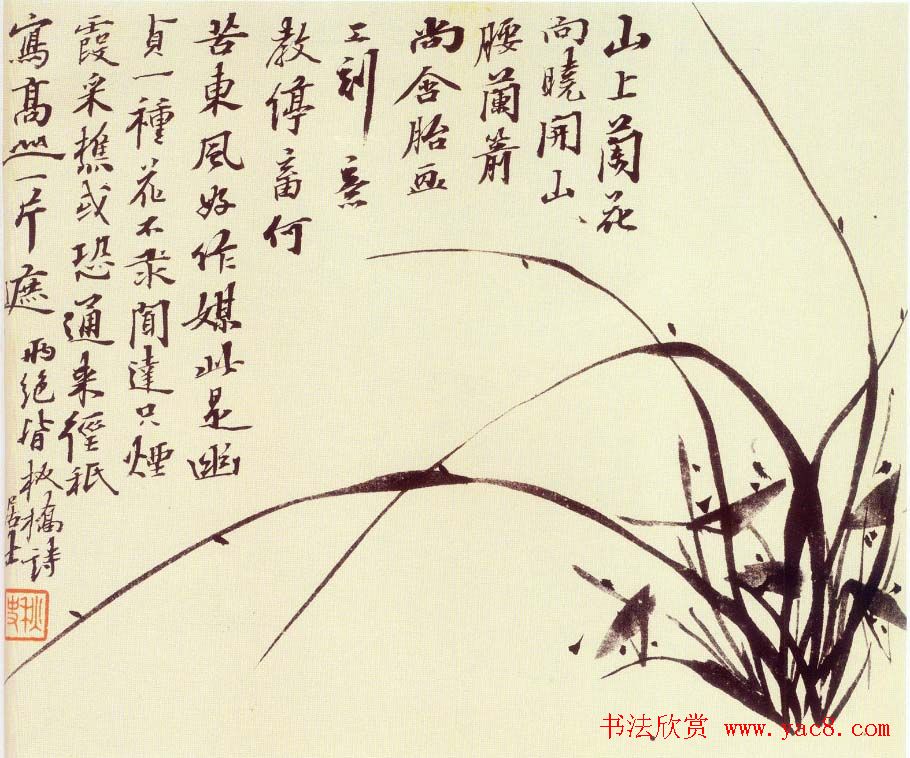 山上蘭花
向曉開山
腰蘭箭
尚含胎画
工刻意
教停畜何
苦東風好作媒此是幽
貞一種花不求聞達只煙
霞采樵或恐通來徑秖
寫高山一片遮 兩絕皆板橋詩
居士
秋史
书法欣赏 www.yac8.com